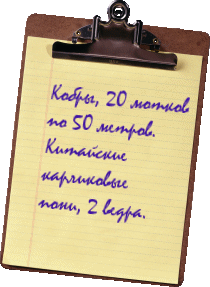 Кобры, 20 мотков
по 50 метров.
Китайские
карликовые
пони, 2 ведра.